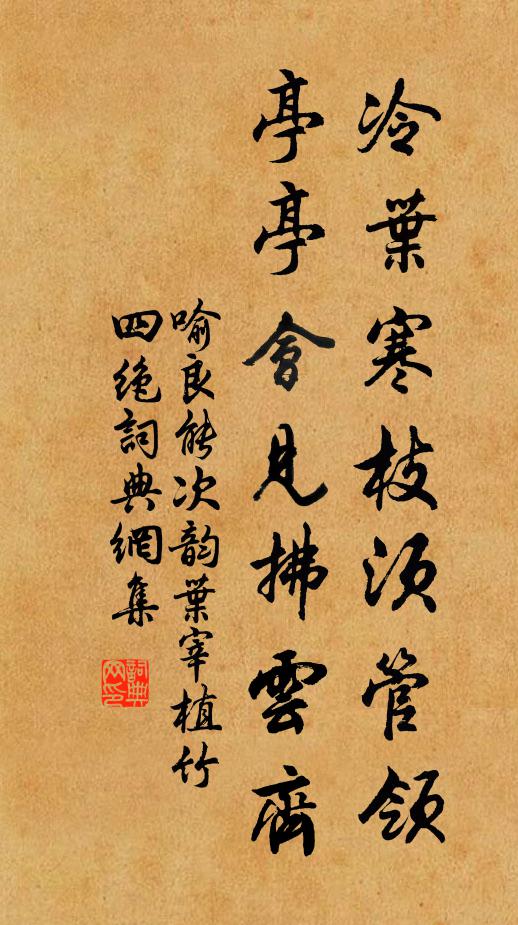 冷葉寒枝須管領
亭亭會見拂雲齊
喻良能次韵葉宰植竹
四絶詞典網集
詞典網印